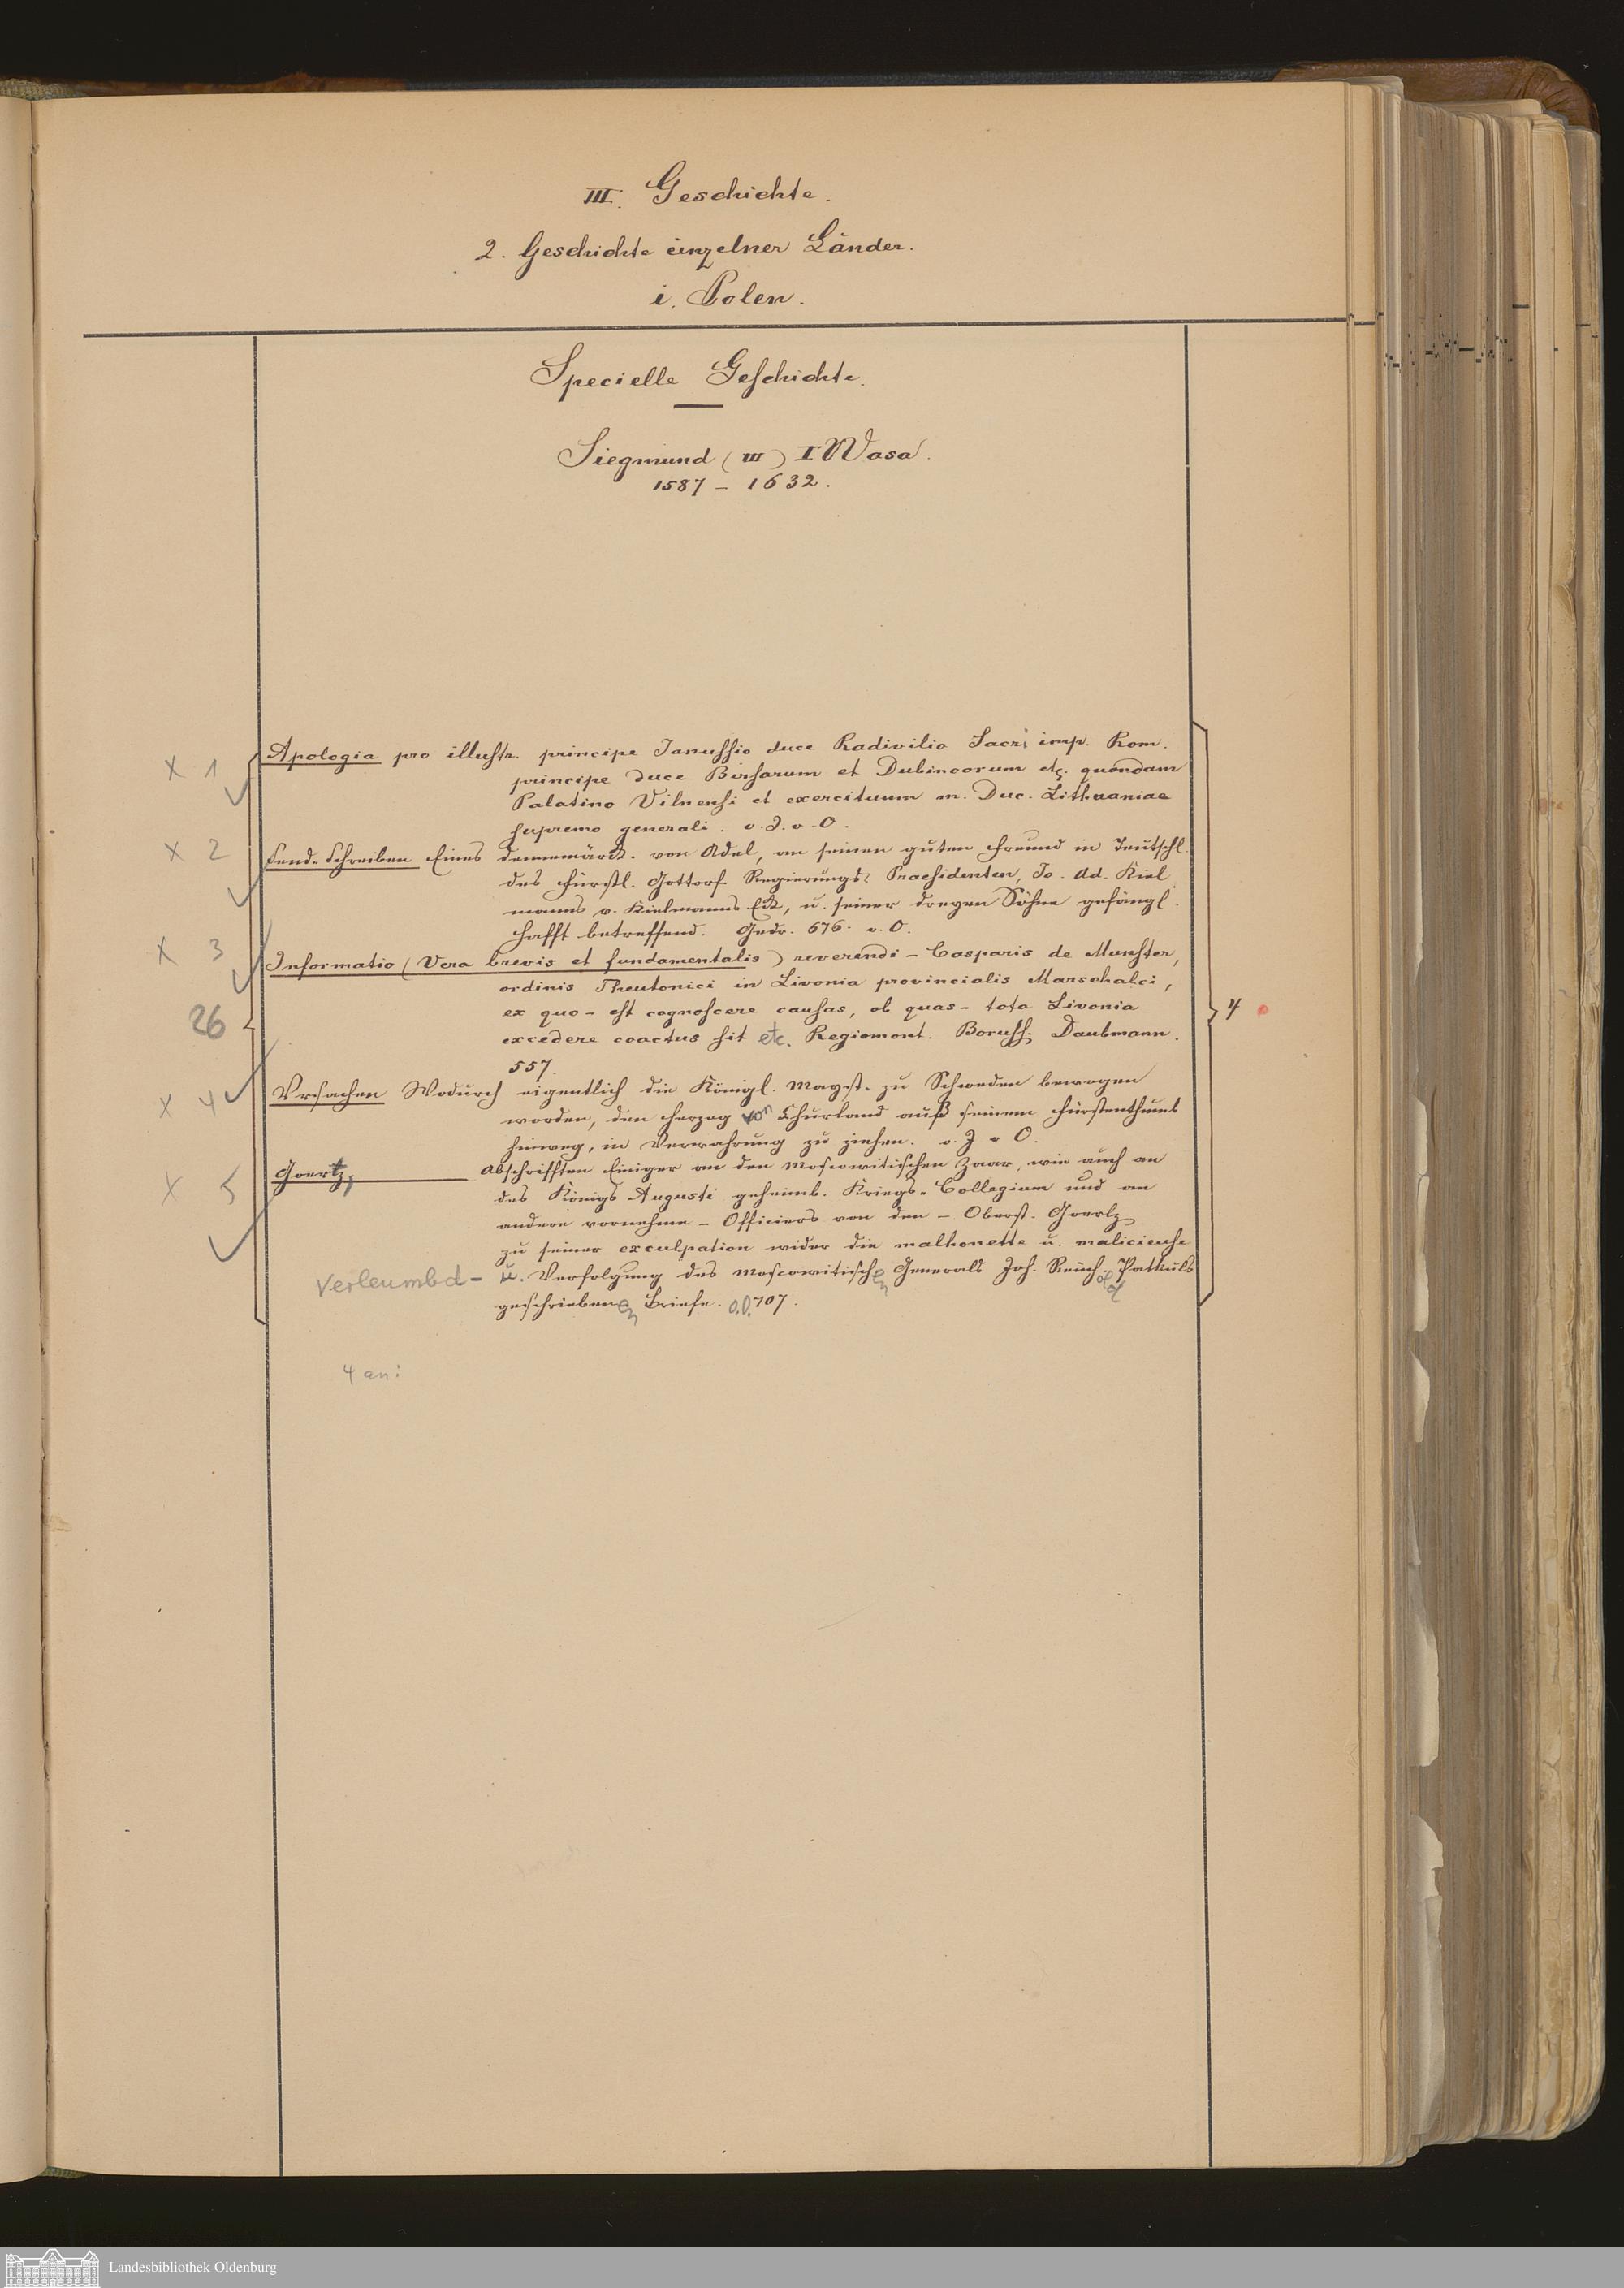 III. Geschichte.
2. Geschichte einzelner Länder.
i. Polen.
Specielle Geschichte.
Siegmund (III) I Wasa.
1587 – 1632.
x 1 Apologia pro illustr. principe Janussio duce Radivilio Sacri imp. Rom.
principe duce Birsarum et Dubincorum etc. quondam
Palatino Vilnensi et exercituum m. Duc. Lithuaniae
supremo generali. o. J. o. O.
x 2 Send-Schreiben Eines dennemärck. von Adel, an seinen guten Freund in Teutschl.
des Fürstl. Gottorf. Regierungs-Praesidenten, Jo. Ad. Kiel
manns v. Kielmanns Eck, u. seiner dreyen Söhne gefängl.
Hafft betreffend. Gedr. 676. o. O.
x 3 Informatio (Vera brevis et fundamentalis) reverendi – Casparis de Munster,
ordinis Theutonici in Livonia provincialis Marschalci,
26 ex quo – est cognoscere causas, ob quas – tota Livonia
excedere coactus sit etc. Regiomont. Boruss. Daubmann.
557.
x 4 Vrsachen Wodurch eigentlich die Königl. Mayst. zu Schweden bewogen
worden, den Herzog von Churland auß seinem Fürstenthumb
hinweg, in Verwahrung zu ziehen. o. J. o. O.
x 5 Goertz, Abschrifften Einiger an den Moscowitischen Zaar, wie auch an
des Königs Augusti geheimb. Kriegs-Collegium und an
andere vornehme – Officiers von den – Oberst. Goertz
zu seiner exculpation wider die malhonette u. malicieuse
Verleumbd- u. Verfolgung des Moscowitischen Generals Joh. Reinhold Patkuls
geschriebenen Briefe. o.O. 707.
4
4 an:
Landesbibliothek Oldenburg